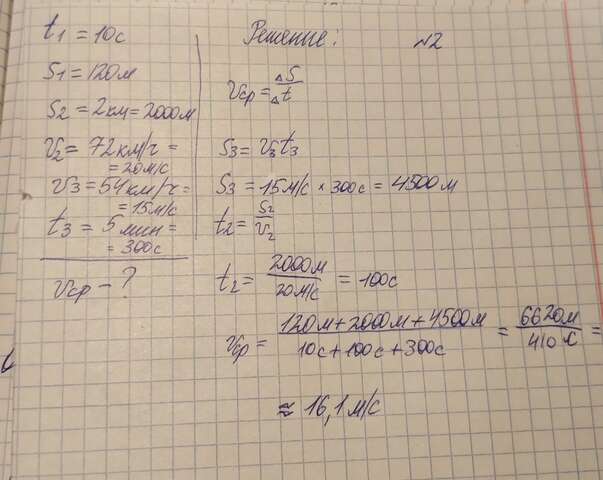 t1 = 10с
S1 = 120м
S2 = 2км = 2000м
v2 = 72км/ч =
= 20м/с
v3 = 54км/ч =
= 15м/с
t3 = 5мин =
= 300с
vср - ?
Решение: №2
vср = ΔS/Δt
S3 = v3t3
S3 = 15м/с × 300с = 4500м
t2 = S2/v2
t2 = 2000м/20м/с = 100с
vср = 120м+2000м+4500м/10с+100с+300с = 6620м/410с =
≈ 16,1м/с